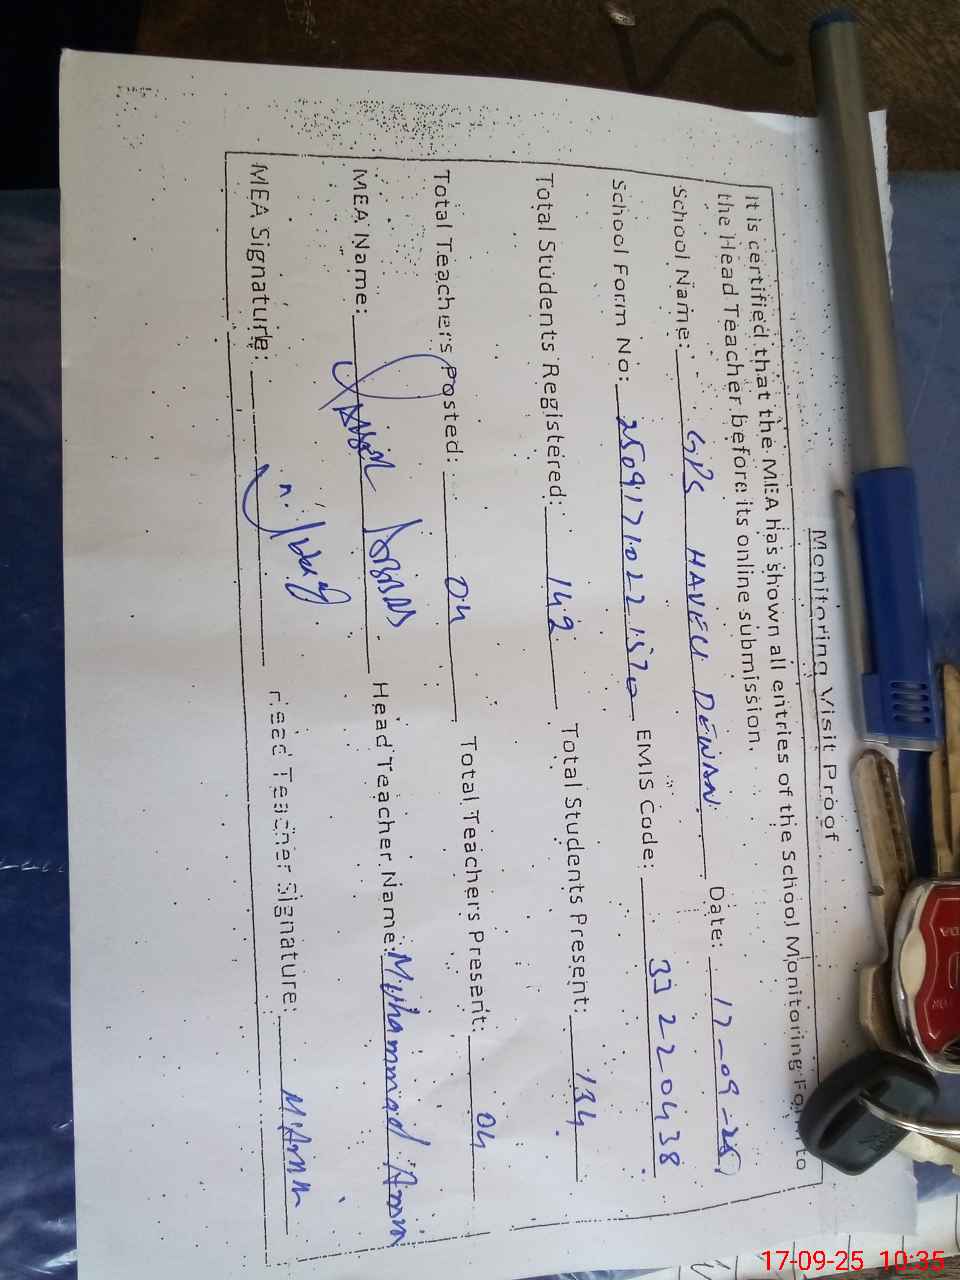 Monitoring Visit Proof
It is certified that the MEA has shown all entries of the School Monitoring Form to
the Head Teacher before its online submission.
School Name: GPS HAVELI DEWAN Date: 17-09-25
School Form No: EMIS Code: 33220438
Total Students Registered: 142 Total Students Present: 134
Total Teachers Posted: 04 Total Teachers Present: 04
MEA Name: Head Teacher Name: Muhammad Amin
MEA Signature: Head Teacher Signature: M.Amin
17-09-25 10:35